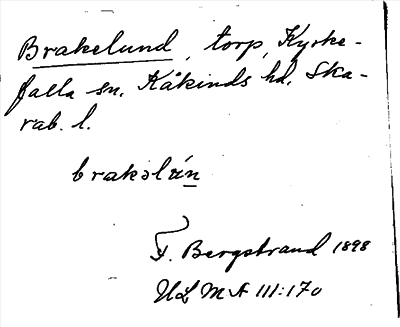 Brakelund, torp, Kyrke-
falla sn. Kåkinds hd. Ska-
rab. l.
brakəlún
F. Bergstrand 1898
ULMA 111:170